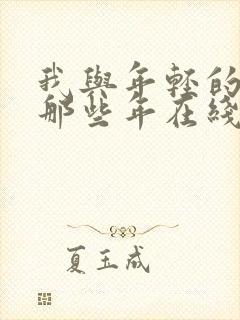 我與年輕的
那些年在綫
夏玉成